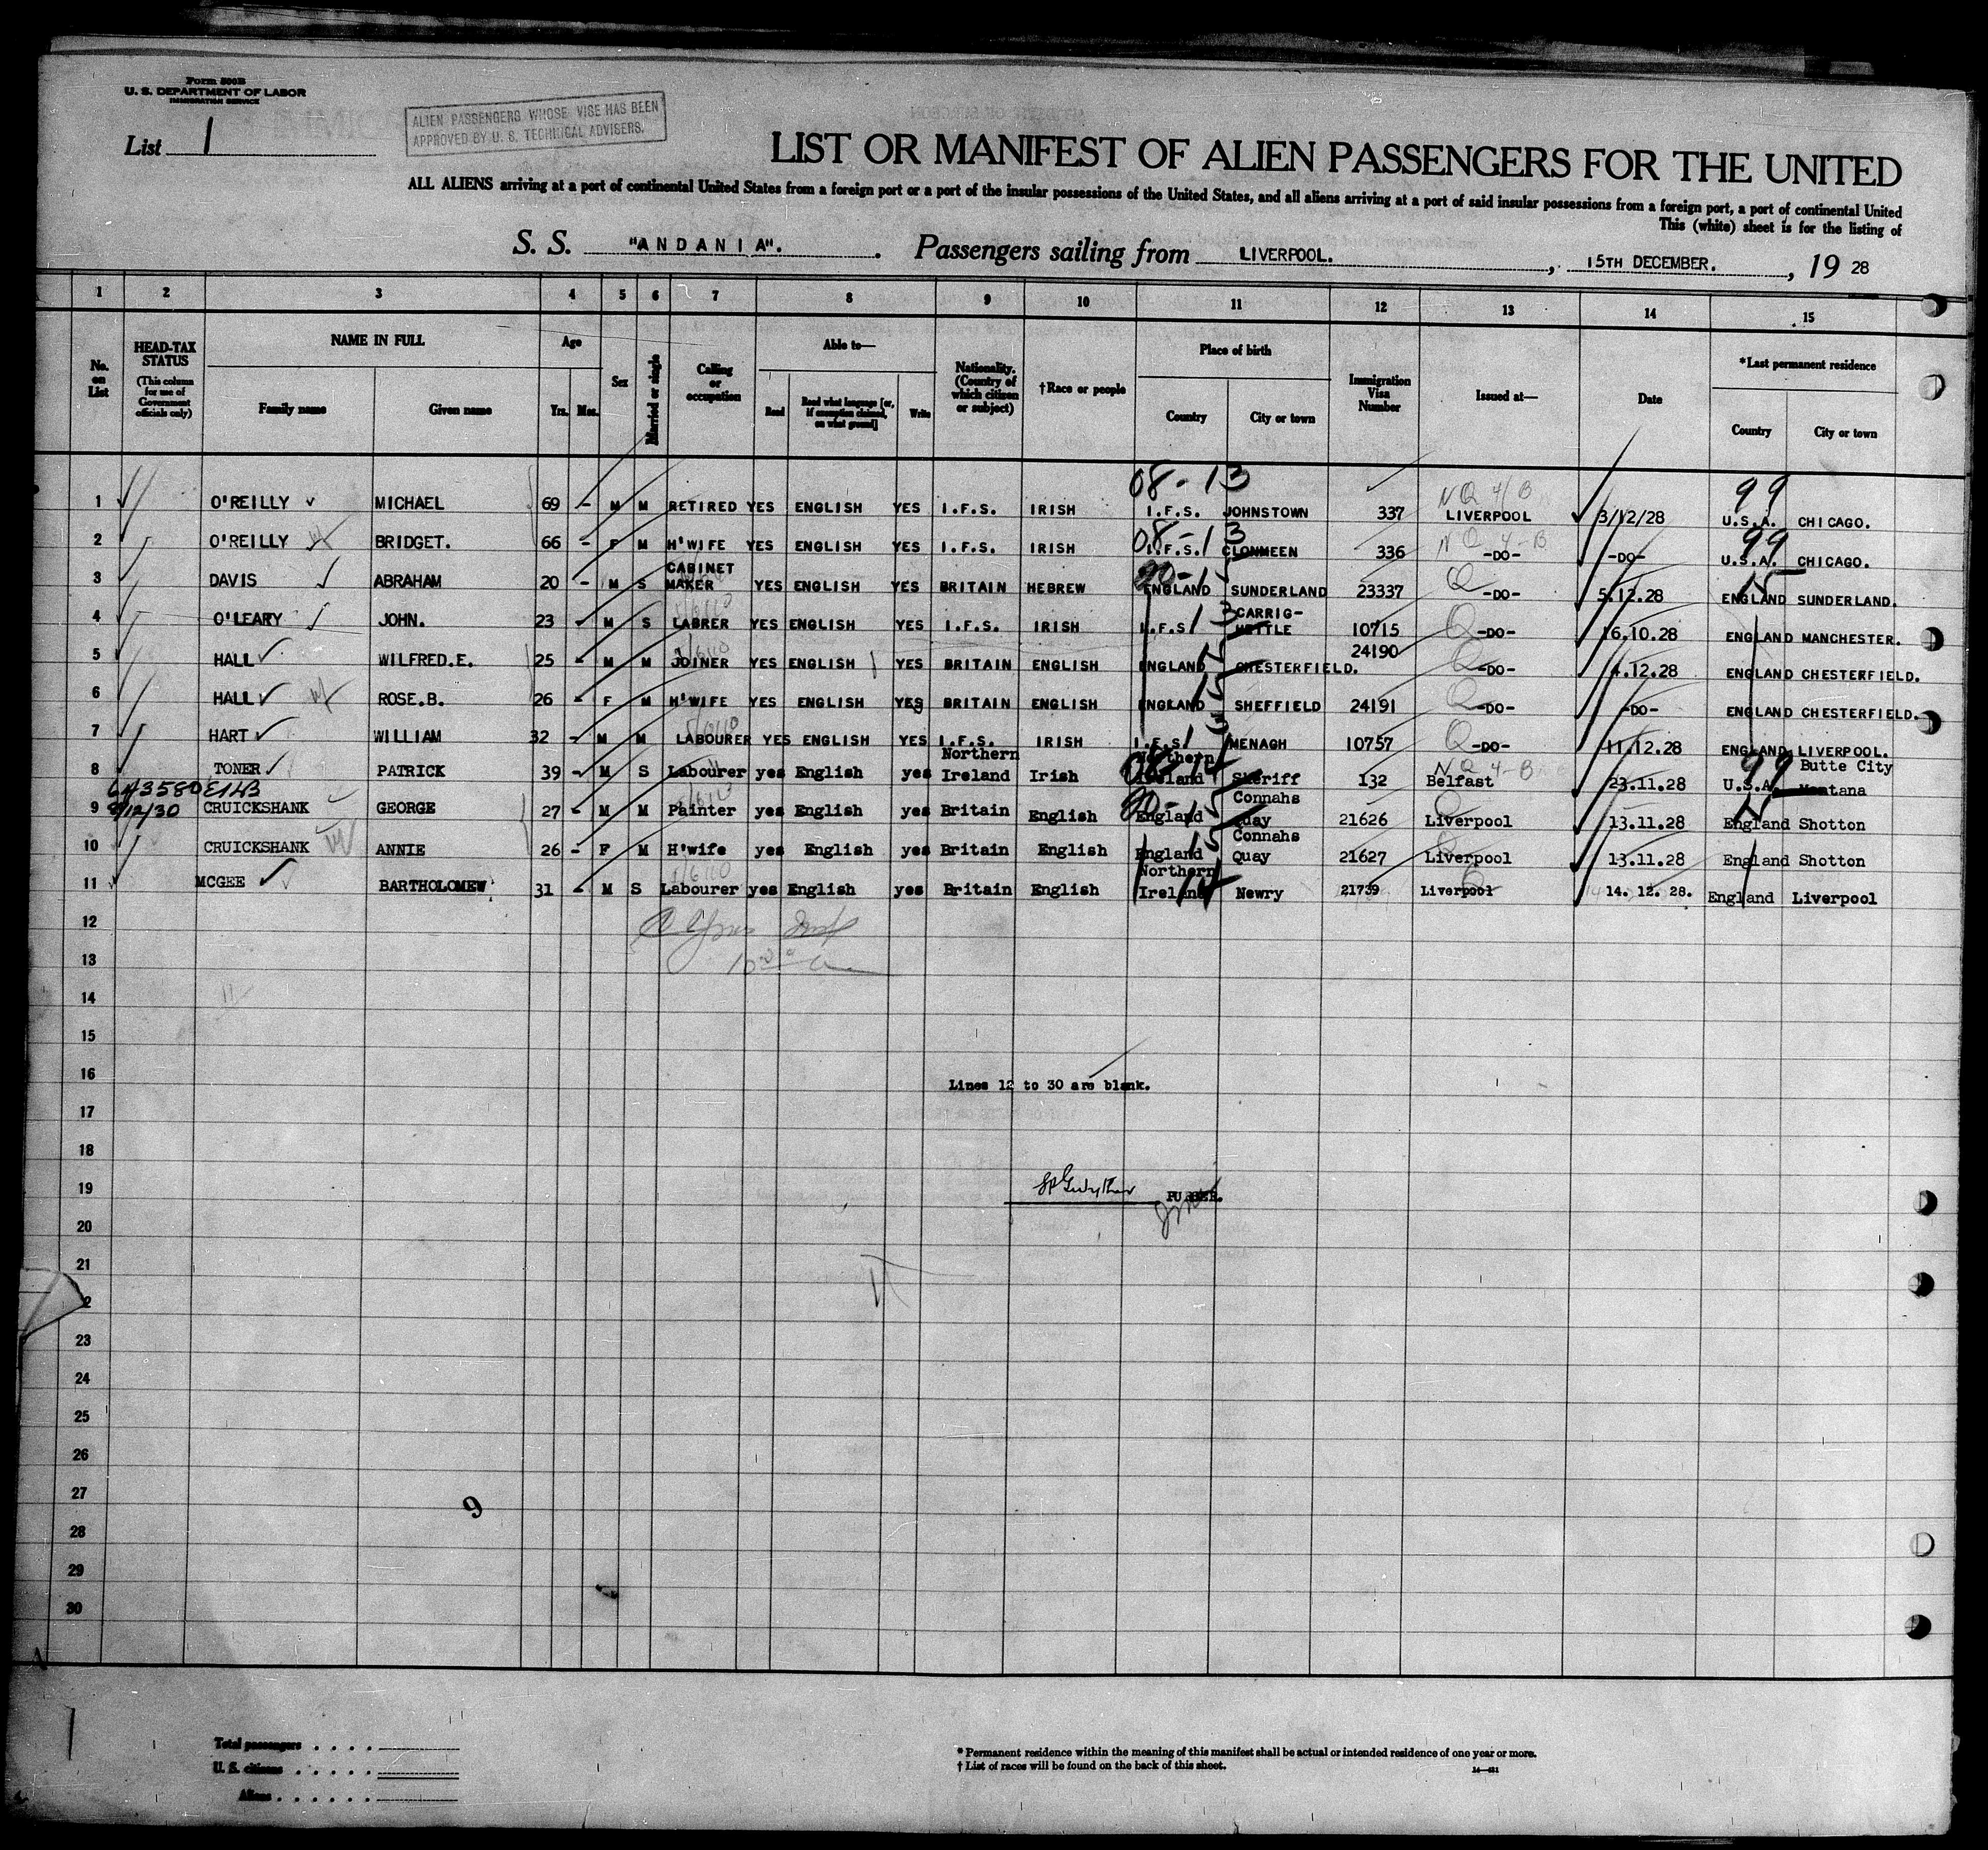 Form 500B
U. S. DEPARTMENT OF LABOR
IMMIGRATION SERVICE
List 1
ALIEN PASSENGERS WHOSE VISE HAS BEEN
APPROVED BY U. S. TECHNICAL ADVISERS.
LIST OR MANIFEST OF ALIEN PASSENGERS FOR THE UNITED
ALL ALIENS arriving at a port of continental United States from a foreign port or a port of the insular possessions of the United States, and all aliens arriving at a port of said insular possessions from a foreign port, a port of continental United
This (white) sheet is for the listing of
S. S. "ANDANIA". Passengers sailing from LIVERPOOL. , 15TH DECEMBER. , 19 28
1 2 3 4 5 6 7 8 9 10 11 12 13 14 15
No. on List
HEAD-TAX STATUS (This column for use of Government officials only)
NAME IN FULL
Family name Given name
Age
Yrs. Mos.
Sex
Married or single
Calling or occupation
Able to—
Read Read what language [or, if exemption claimed, on what ground] Write
Nationality. (Country of which citizen or subject)
†Race or people
Place of birth
Country City or town
Immigration Visa Number
Issued at—
Date
*Last permanent residence
Country City or town
08-13 99
NQ 4/B
1 O'REILLY MICHAEL 69 - M M RETIRED YES ENGLISH YES I.F.S. IRISH I.F.S. JOHNSTOWN 337 LIVERPOOL 3/12/28 U.S.A. CHICAGO.
08-13 NQ 4-B 99
2 O'REILLY BRIDGET. 66 - F M H'WIFE YES ENGLISH YES I.F.S. IRISH I.F.S. CLONMEEN 336 -DO- -DO- U.S.A. CHICAGO.
3 DAVIS ABRAHAM 20 - M S CABINET MAKER YES ENGLISH YES BRITAIN HEBREW ENGLAND SUNDERLAND 23337 -DO- 5.12.28 ENGLAND SUNDERLAND.
4 O'LEARY JOHN. 23 - M S LABRER YES ENGLISH YES I.F.S. IRISH I.F.S 10715 -DO- 16.10.28 ENGLAND MANCHESTER.
5 HALL WILFRED.E. 25 - M M JOINER YES ENGLISH YES BRITAIN ENGLISH ENGLAND CHESTERFIELD. 24190 -DO- 4.12.28 ENGLAND CHESTERFIELD.
6 HALL ROSE.B. 26 - F M H'WIFE YES ENGLISH YES BRITAIN ENGLISH ENGLAND SHEFFIELD 24191 -DO- -DO- ENGLAND CHESTERFIELD.
7 HART WILLIAM 32 - M M LABOURER YES ENGLISH YES I.F.S. IRISH I.F.S. NENAGH 10757 -DO- 11.12.28 ENGLAND LIVERPOOL.
8 TONER PATRICK 39 - M S Labourer yes English yes Northern Ireland Irish Northern Ireland Sheriff 132 Belfast 23.11.28 U.S.A. Butte City Montana
9 CRUICKSHANK GEORGE 27 - M M Painter yes English yes Britain English England Connahs Quay 21626 Liverpool 13.11.28 England Shotton
10 CRUICKSHANK ANNIE 26 - F M H'wife yes English yes Britain English England Connahs Quay 21627 Liverpool 13.11.28 England Shotton
11 MCGEE BARTHOLOMEW 31 - M S Labourer yes English yes Britain English Northern Ireland Newry 21739 Liverpool 14. 12. 28. England Liverpool
12
13
14
15
16
Lines 12 to 30 are blank.
17
18
19
PURSER.
20
21
2
23
24
25
26
27
9
28
29
30
Total passengers
U. S. citizens
Aliens
* Permanent residence within the meaning of this manifest shall be actual or intended residence of one year or more.
† List of races will be found on the back of this sheet.